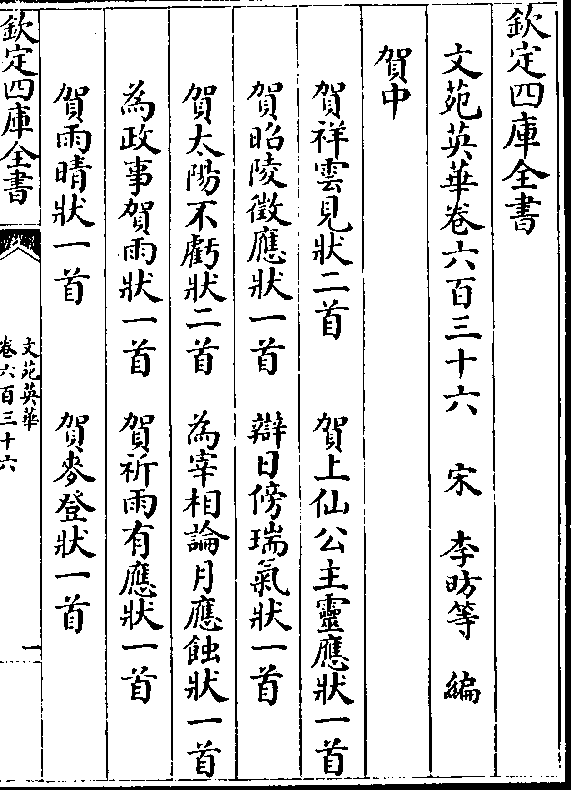 欽定四庫全書
文苑英華卷六百三十六 宋 李昉等 編
賀中
賀祥雲見狀二首 賀上仙公主靈應狀一首
賀昭陵徵應狀一首 辯日傍瑞氣狀一首
賀太陽不虧狀二首 為宰相論月應蝕狀一首
為政事賀雨狀一首 賀祈雨有應狀一首
賀雨晴狀一首 賀麥登狀一首
欽定四庫全書
文苑英華
卷六百三十六
一